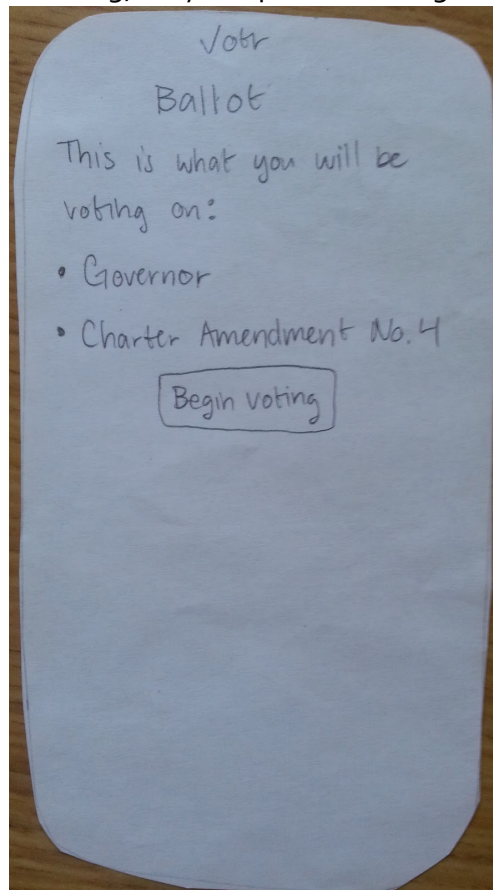 Votr
Ballot
This is what you will be
voting on:
• Governor
• Charter Amendment No. 4
Begin voting